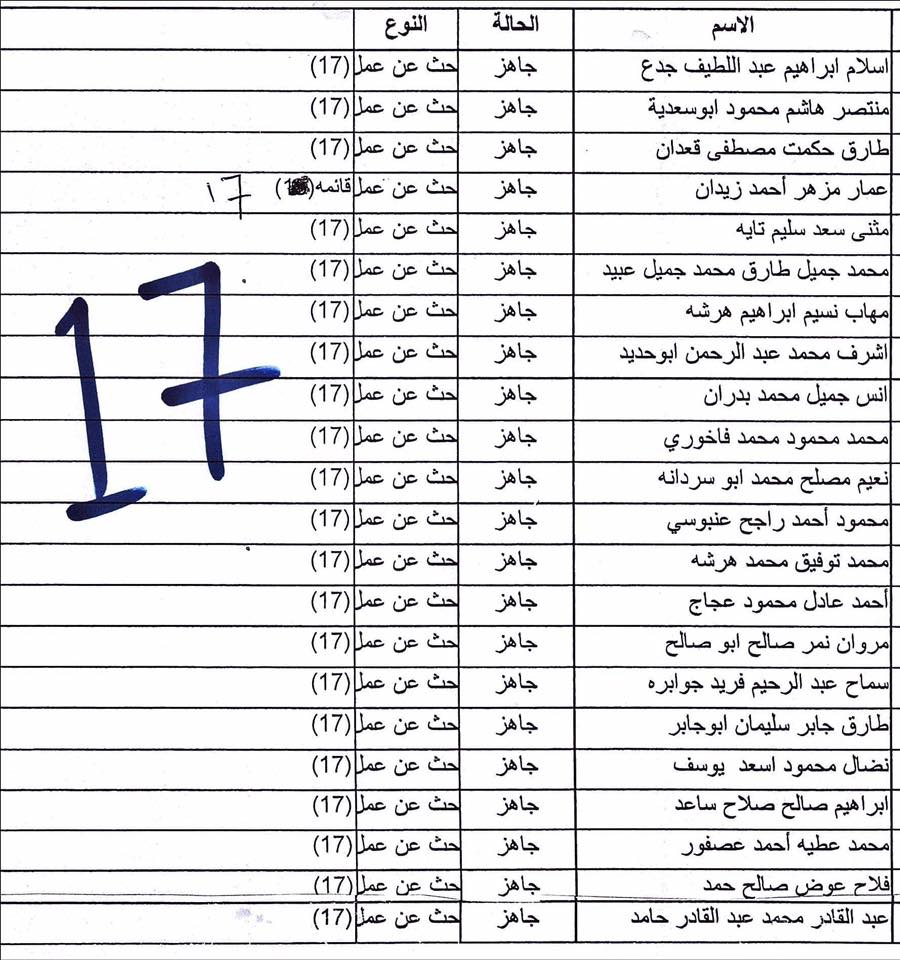 الاسم الحالة النوع
اسلام ابراهيم عبد اللطيف جدع جاهز حث عن عمل (17)
منتصر هاشم محمود ابوسعدية جاهز حث عن عمل (17)
طارق حكمت مصطفى قعدان جاهز حث عن عمل (17)
عمار مزهر أحمد زيدان جاهز حث عن عمل قائمه 17
مثنى سعد سليم تايه جاهز حث عن عمل (17)
محمد جميل طارق محمد جميل عبيد جاهز حث عن عمل (17)
مهاب نسيم ابراهيم هرشه جاهز حث عن عمل (17)
اشرف محمد عبد الرحمن ابوحديد جاهز حث عن عمل (17)
انس جميل محمد بدران جاهز حث عن عمل (17)
محمد محمود محمد فاخوري جاهز حث عن عمل (17)
نعيم مصلح محمد ابو سردانه جاهز حث عن عمل (17)
محمود أحمد راجح عنبوسي جاهز حث عن عمل (17)
محمد توفيق محمد هرشه جاهز حث عن عمل (17)
أحمد عادل محمود عجاج جاهز حث عن عمل (17)
مروان نمر صالح ابو صالح جاهز حث عن عمل (17)
سماح عبد الرحيم فريد جوابره جاهز حث عن عمل (17)
طارق جابر سليمان ابوجابر جاهز حث عن عمل (17)
نضال محمود اسعد يوسف جاهز حث عن عمل (17)
ابراهيم صالح صلاح ساعد جاهز حث عن عمل (17)
محمد عطيه أحمد عصفور جاهز حث عن عمل (17)
فلاح عوض صالح حمد جاهز حث عن عمل (17)
عبد القادر محمد عبد القادر حامد جاهز حث عن عمل (17)
17